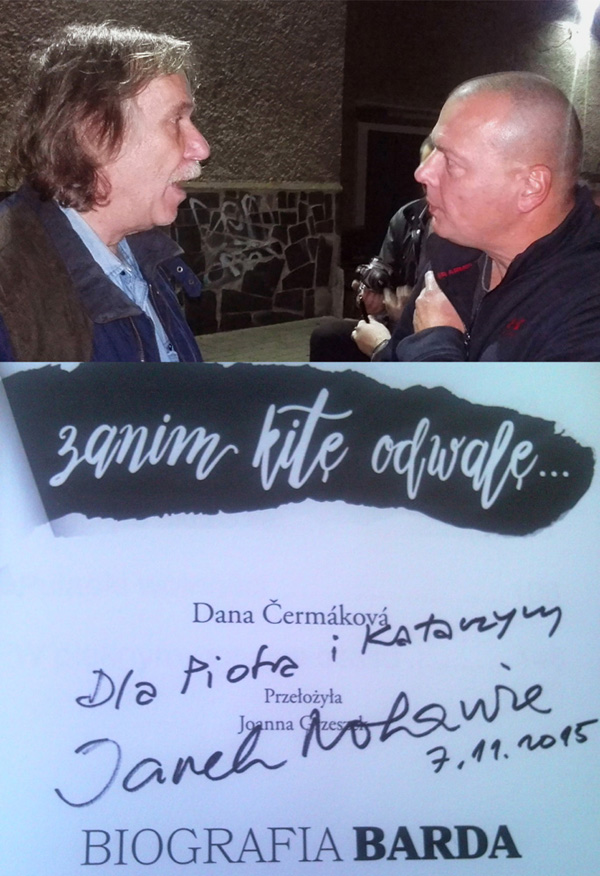 zanim kitę odwalę...
Dana Čermáková
Dla Piotra i Katarzyny
Przełożyła
Joanna Grzeszek
Janek Nohavica
7.11.2015
BIOGRAFIA BARDA